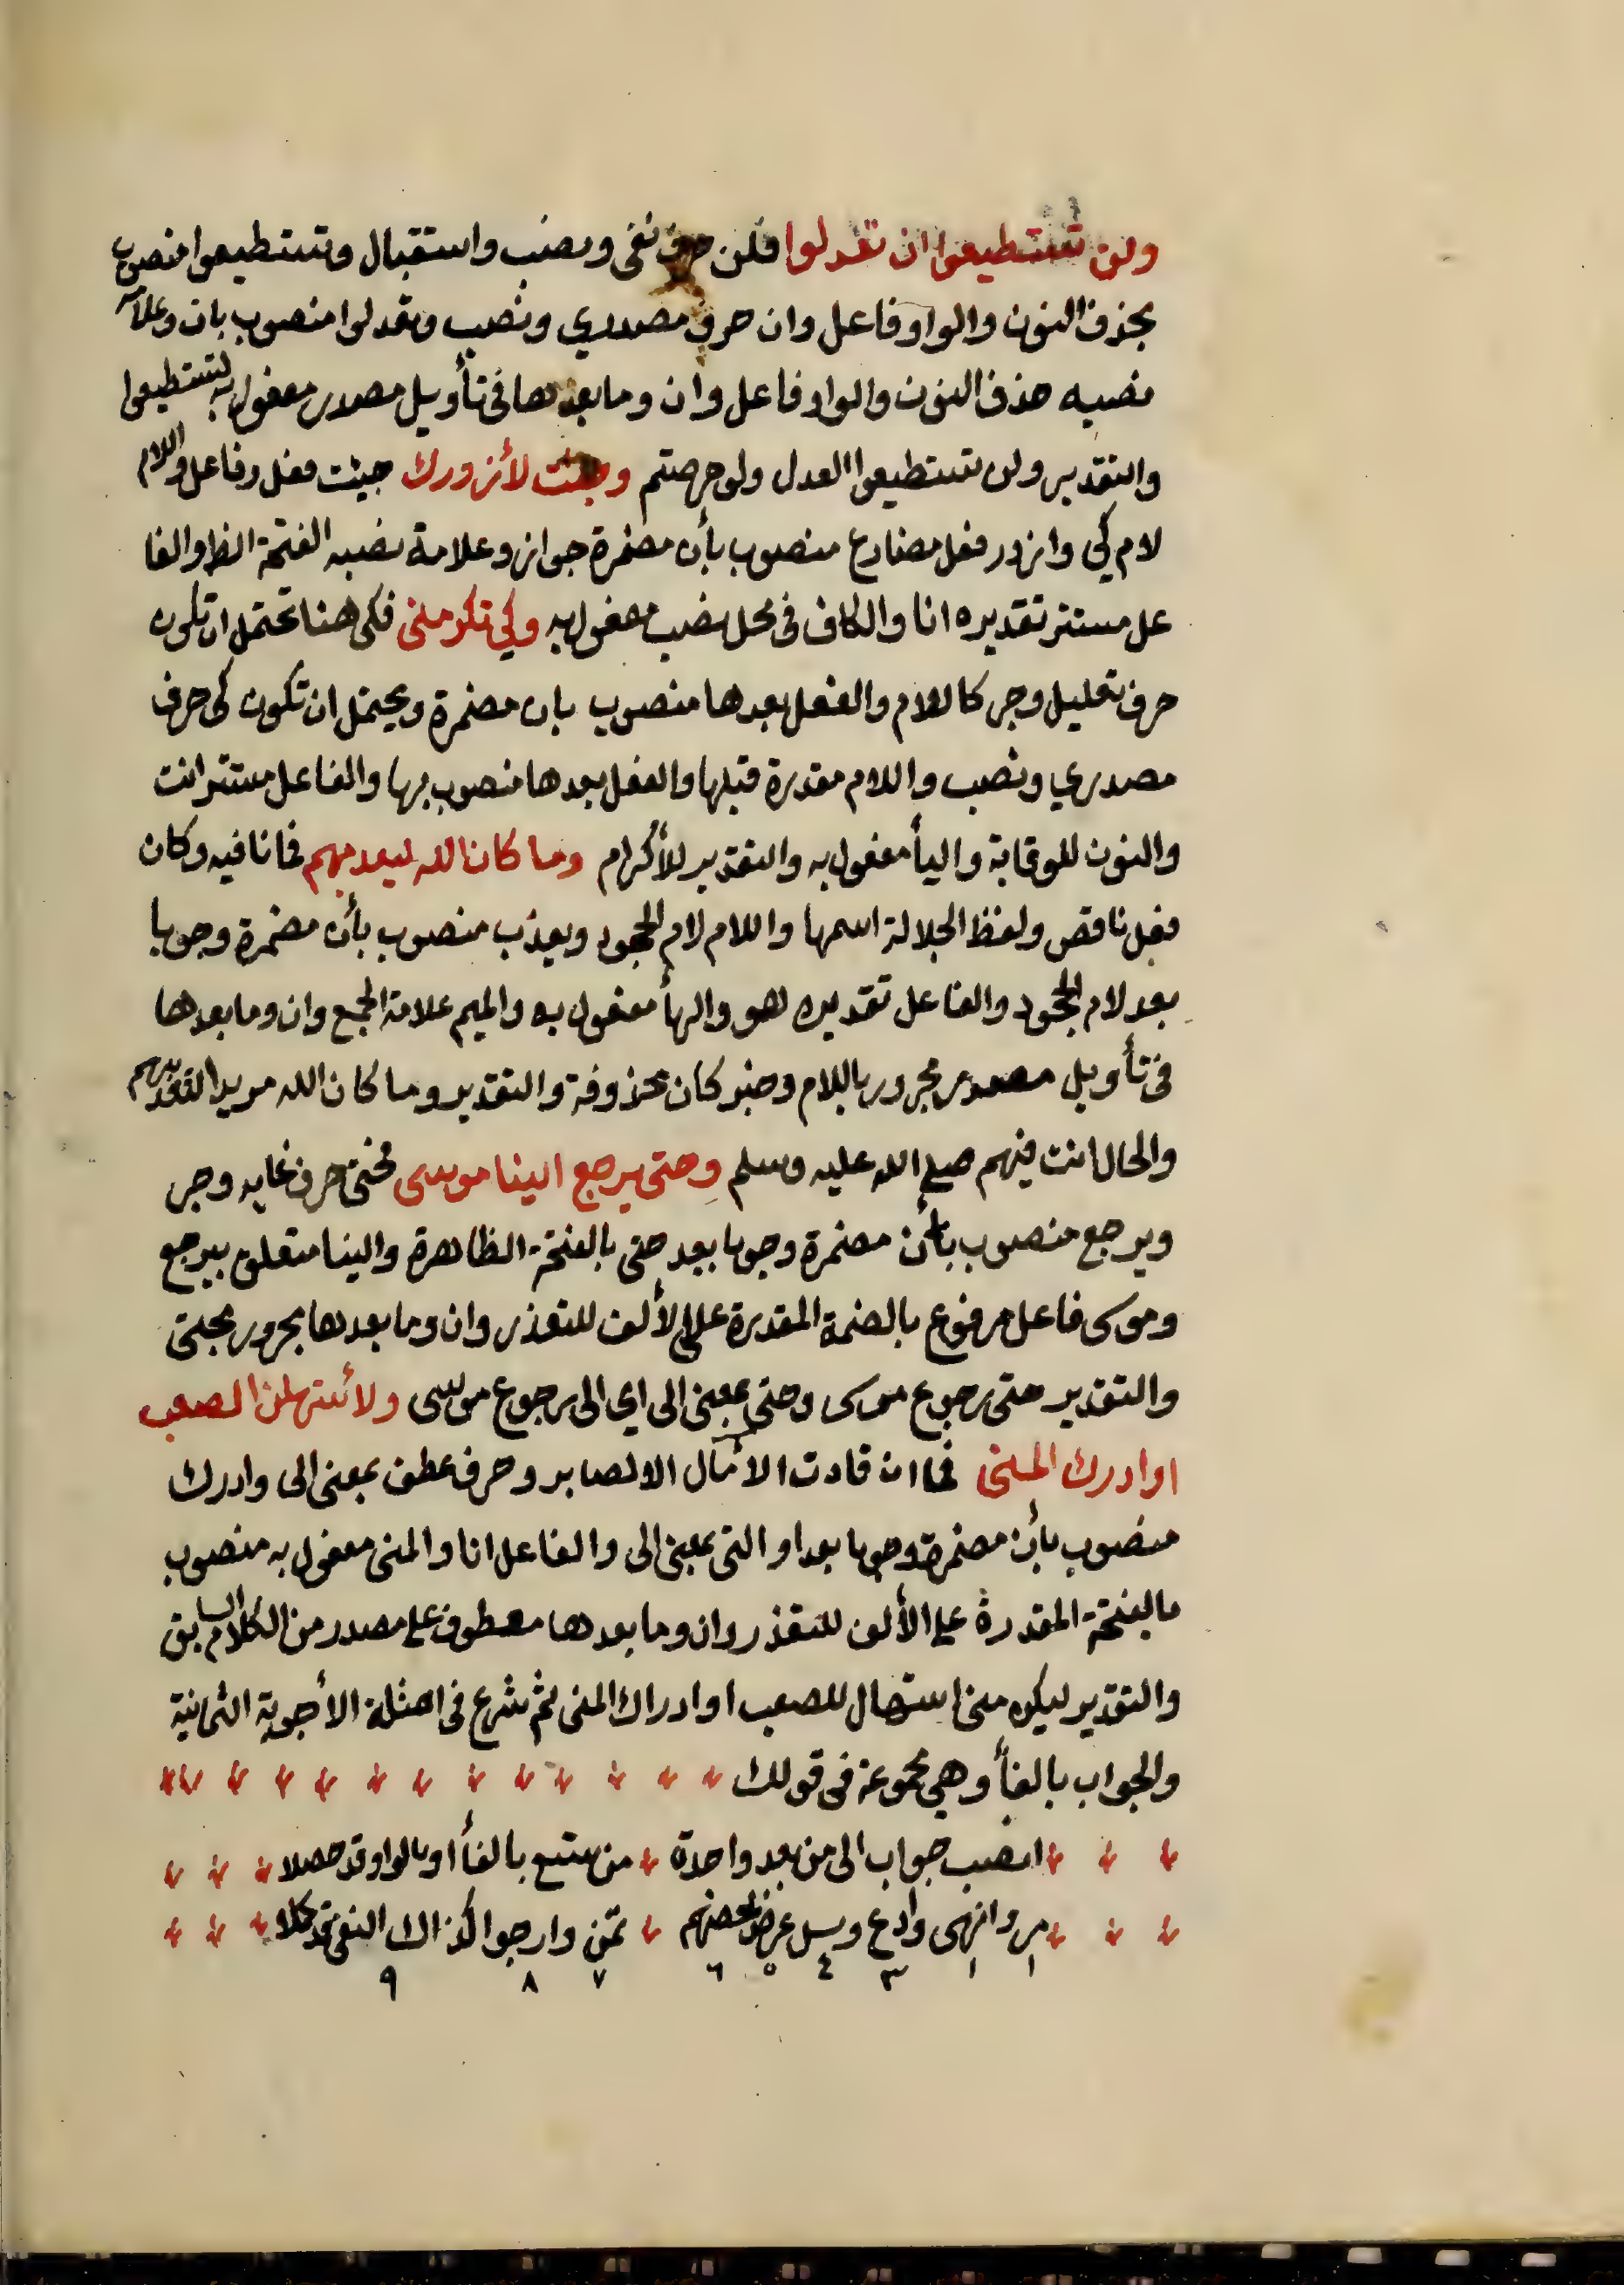 ولن تستطيعوا ان تعدلوا فلن حرف نفي ونصب واستقبال وتستطيعوا منصوب
بحذف النون والواو فاعل وان حرف مصدري ونصب وتعدلوا منصوب بان وعلامة
نصبه حذف النون والواو فاعل وان وما بعدها في تأويل مصدر مفعول به لتستطيعوا
والتقدير ولن تستطيعوا العدل ولو حرصتم وجئت لأزورك جيئت فعل وفاعل واللام
لام كي وازور فعل مضارع منصوب بأن مضمرة جواز وعلامة نصبه الفتحة الظا والفا
عل مستتر تقديره انا والكاف في محل نصب مفعول به وكي تكرمني فكي هنا تحتمل ان تكون
حرف تعليل وجر كاللام والفعل بعدها منصوب بان مضمرة ويحتمل ان تكون كي حرف
مصدري ونصب واللام مقدرة قبلها والفعل بعدها منصوب بها والفاعل مستتر انت
والنون للوقاية واليأ مفعول به والتقدير للأكرام وما كان الله ليعدبهم فما نافيه وكان
فعل ناقص ولفظ الجلالة اسمها واللام لام الجحود ويعذب منصوب بأن مضمرة وجوبا
بعد لام الجحود والفاعل تقديره هو والهأ مفعول به والميم علامة الجمع وان وما بعدها
في تأويل مصدر مجرور باللام وخبر كان محذوفة والتقدير وما كان الله مريدا لتعذيبهم
والحال انت فيهم صلى الله عليه وسلم وحتى يرجع الينا موسى فحتى حرف غايه وجر
ويرجع منصوب بأن مضمرة وجوبا بعد حتى بالفتحة الظاهرة والينا متعلق بيرجع
وموسى فاعل مرفوع بالضمة المقدرة على الألف للتعذر وان وما بعدها مجرور بحتى
والتقدير حتى رجوع موسى وحتى بمعنى الى اي الى رجوع موسى ولأستهلن الصعب
او ادرك المنى فما ان قادت الأمال الا لصابر وحرف عطف بمعنى الى وادرك
منصوب بأن مضمرة وجوبا بعد او التي بمعنى الى والفاعل انا والمنى مفعول به منصوب
بالفتحة المقدرة على الألف للتعذر وان وما بعدها معطوف على مصدر من الكلام السابق
والتقدير ليكون مني استهال للصعب او ادراك المنى ثم شرع في امثلة الأجوبة الثمانية
والجواب بالفأ وهي مجموعة في قولك
انصب جواب الى من بعد واحدة من ستع بالفأ او بالواو قد حصلا
مر وانهى وادع وسل عرض لحضهم تمن وارجوا كذاك النفي قد كملا
١ ١ ٣ ٤ ٥ ٦ ٧ ٨ ٩